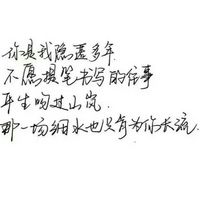 你是我隐匿多年
不愿提笔书写的往事
平生吻过山岚
那一场细水也只为你长流.